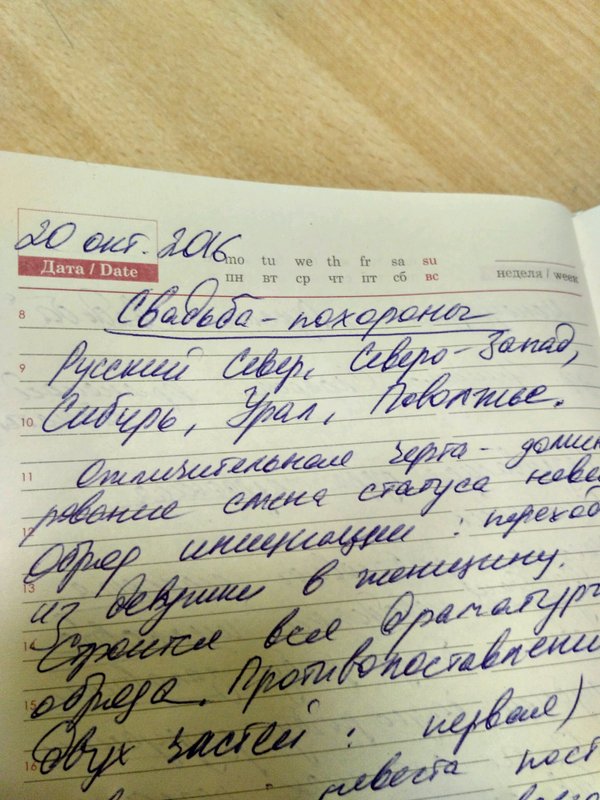 20 окт. 2016
Дата / Date
mo tu we th fr sa su
пн вт ср чт пт сб вс
неделя / week
8 Свадьба - похороны
9 Русский Север, Северо-Запад,
10 Сибирь, Урал, Поволжье.
11 Отличительная черта - домини
рование смена статуса неве
12
Обряд инициации: переход
13
из девушки в женщину.
14
Строится вся драматур
15
обряда. Противопоставлени
двух частей: первая)
16
невеста пост